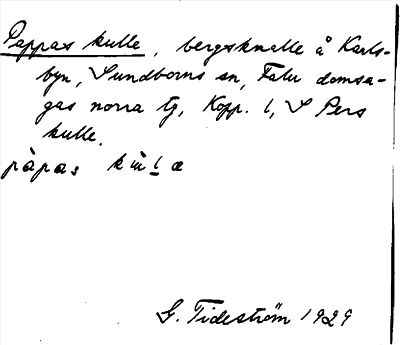 Pappas kulle, bergsknalle å Karls-
byn, Sundborns sn, Falu domsa-
gas norra tg, Kopp. l, S Pers
kulle.
pàpas kùlæ
G. Tideström 1929